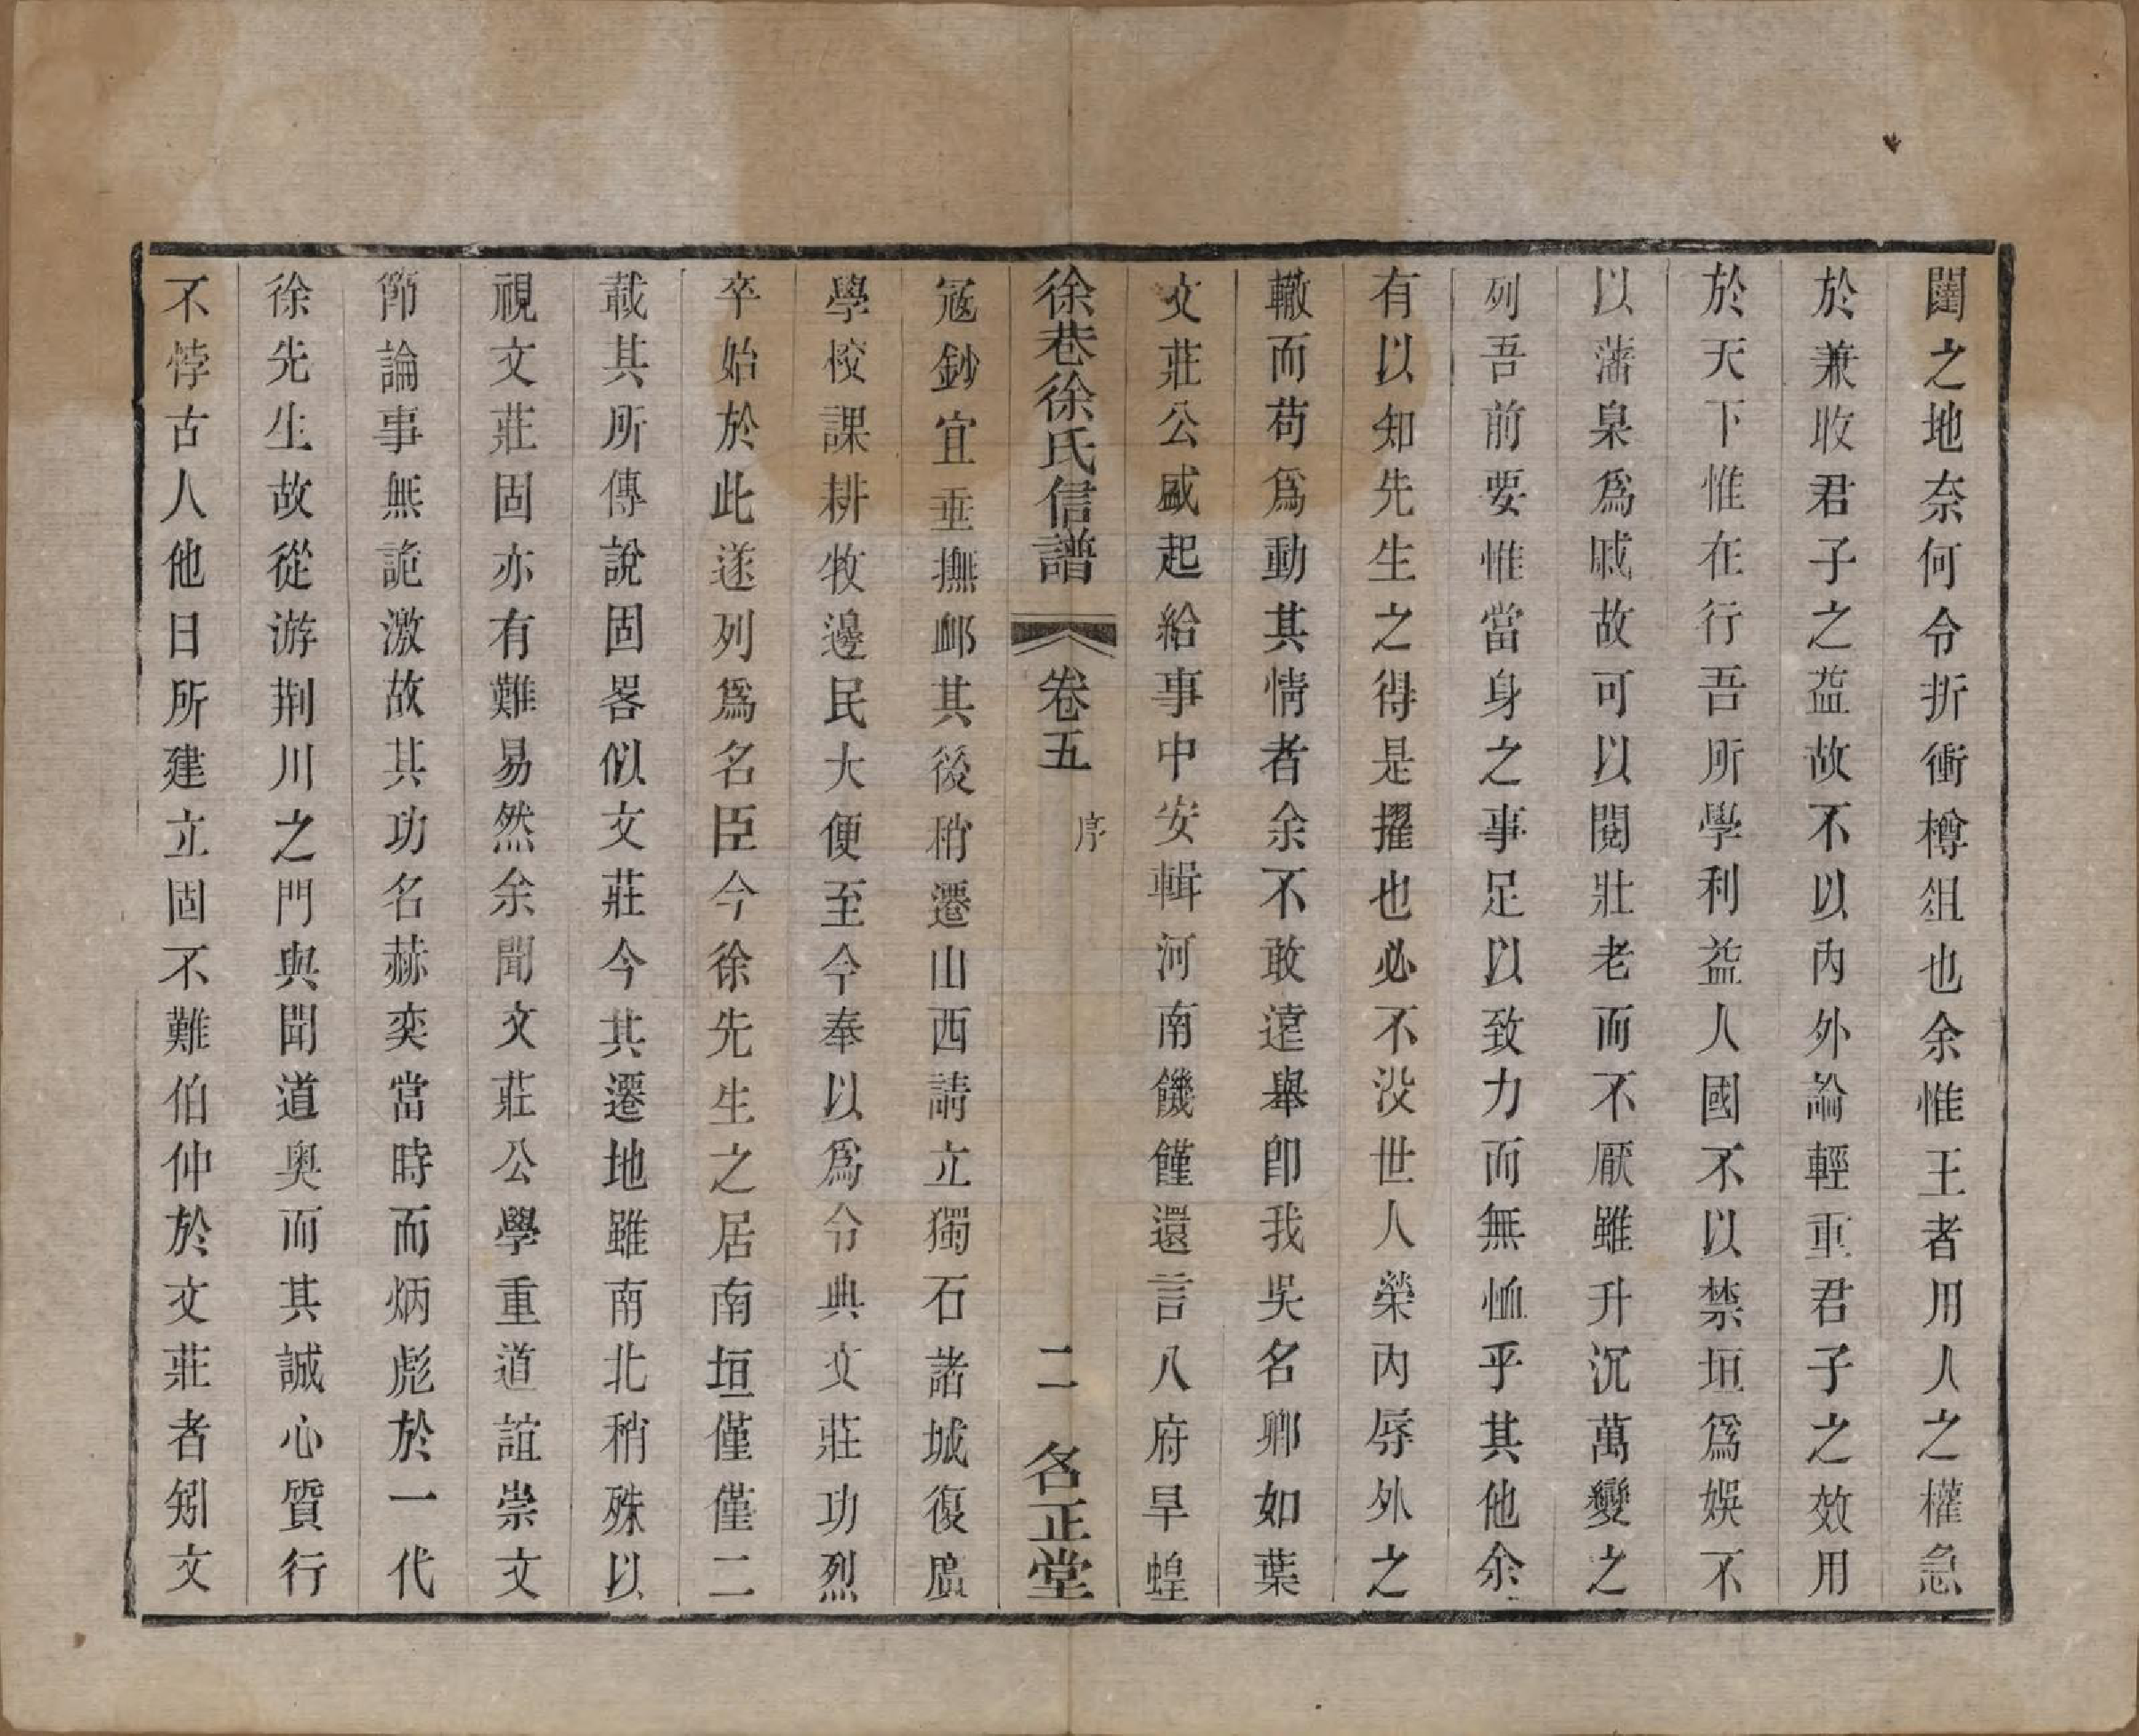 閫之地奈何令折衝樽俎也余惟王者用人之權急
於兼收君子之益故不以內外論輕重君子之效用
於天下惟在行吾所學利益人國不以禁垣爲娛不
以藩臬爲戚故可以閱壯老而不厭雖升沉萬變之
列吾前要惟當身之事足以致力而無恤乎其他余
有以知先生之得是擢也必不没世人榮內辱外之
轍而苟爲動其情者余不敢遠舉卽我吳名鄉如葉
文莊公盛起給事中安輯河南饑饉還言八府旱蝗
徐巷徐氏信譜 卷五 序 二 名正堂
冦鈔宜垂撫邮其後稍遷山西請立獨石諸城復廣
學校課耕牧邊民大便至今奉以爲令典文莊功烈
卒始於此遂列爲名臣今徐先生之居南垣僅僅二
載其所傳說固畧似文莊今其遷地雖南北稍殊以
視文莊固亦有難易然余聞文莊公學重道誼崇文
節論事無詭激故其功名赫奕當時而炳彪於一代
徐先生故從游荆川之門與聞道奥而其誠心質行
不悖古人他日所建立固不難伯仲於文莊者矧文